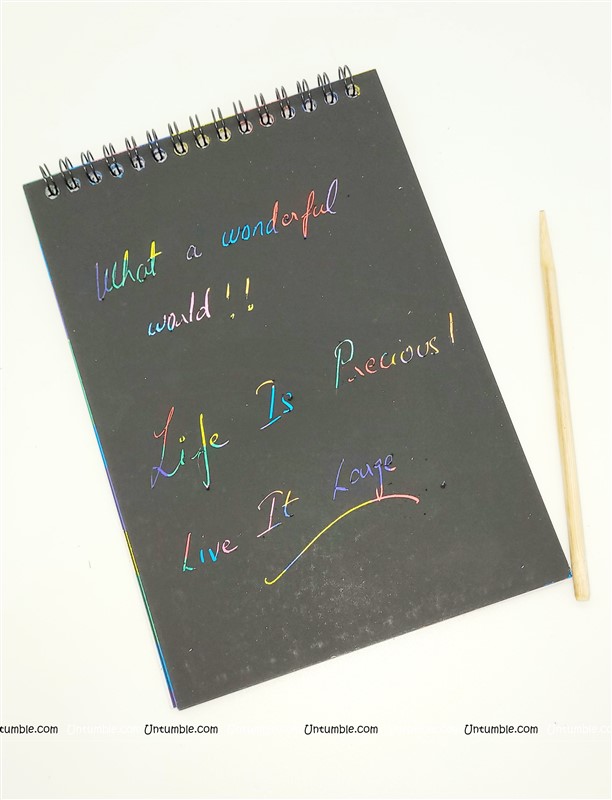 What a wonderful
would !!
Life Is Precious!
Live It Large...
Untumble.com Untumble.com Untumble.com Untumble.com